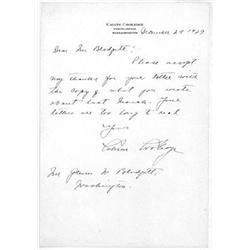 CALVIN COOLIDGE
NORTHAMPTON
MASSACHUSETTS
December 27 1929
Dear Mr Blodgett:
Please accept
my thanks for your letter with
the copy of what you wrote
about last March. Your
letters are too long to read
Yours
Calvin Coolidge
Mr M Blodgett
Washington.